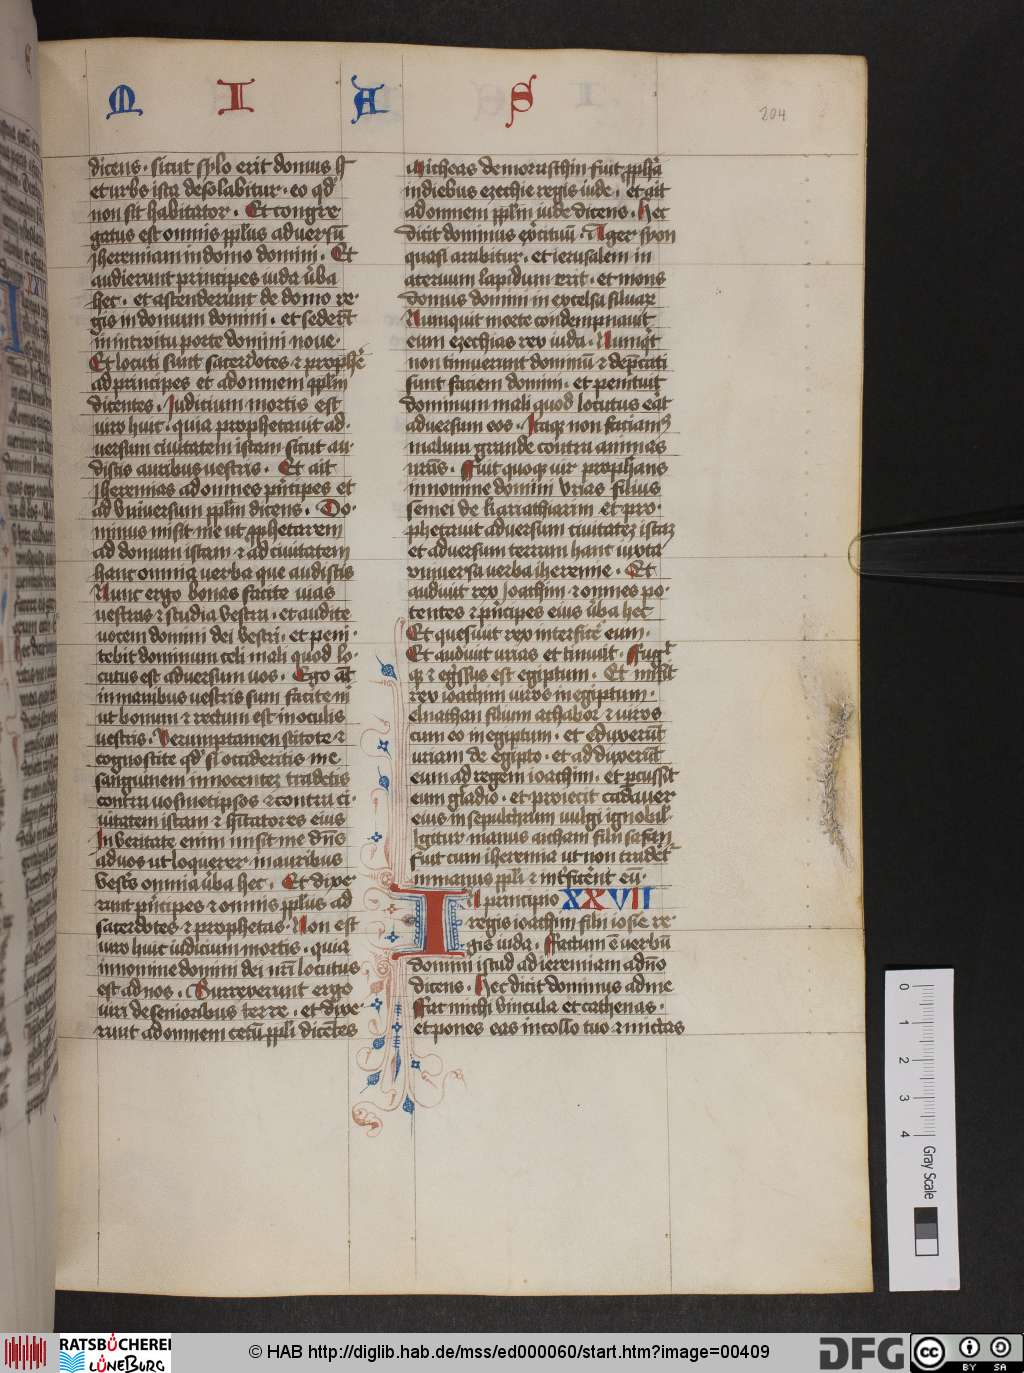 M I A S
204
dicens · sicut sylo erit domus h̅
et urbs ista desolabitur · eo qd̛
non sit habitator · Et congre
gatus est omnis pplūs adversū
jheremiam in domo domini · Et
audierunt principes iuda ūba
hec · et ascenderunt de domo re-
gis in domum domini · et sederūt
in introitu porte domini noue ·
Et locuti sunt sacerdotes ⁊ prophē
ad principes et ad omnem pplm̄
dicentes · Judicium mortis est
uiro huic · quia prophetauit ad-
versum ciuitatem istam sicut au-
distis auribus uestris · Et ait
jheremias ad omnes pncipes et
ad vniversum pplm̄ dicens · Do-
minus misit me ut pphetarem
ad domum istam ⁊ ad ciuitatem
hanc omnia verba que audistis
Nunc ergo bonas facite uias
vestras ⁊ studia vestra · et audite
vocem domini dei vestri · et peni-
tebit dominum celi mali quod lo-
cutus est adversum uos · Ego aūt
in manibus vestris sum facite mi
ut bonum ⁊ rectum est in oculis
vestris · Verumptamen scitote ⁊
cognoscite qd̛ si occideritis me
sanguinem innocentez tradetis
contra vosmetipsos ⁊ contra ci-
uitatem istam ⁊ hītatores eius
In veritate enim misit me dn̄s
ad uos ut loquerer in auribus
vestris omnia ūba hec · Et dixe
runt pncipes ⁊ omnis pplūs ad
sacerdotes ⁊ prophetas · Non est
uiro huic iudicium mortis · quia
in nomine domini dei nr̄i locutus
est ad nos · Surrexerunt ergo
uiri de senioribus terre · et dixe-
runt ad omnem cetū ppli dicētes
Micheas de morasthin fuit pphā
in diebus ezechie regis iude · et ait
ad omnem pplm̄ iude dicens · Hec
dicit dominus exercituū · Ager syon
quasi arabitur · et ierusalem in
aceruum lapidum erit · et mons
domus domini in excelsa siluarꝫ
Numquit morte condempnauit
eum ezechias rex iuda · Numqͥt
non timuerunt dominū ⁊ dep̄cati
sunt faciem domini · et penituit
dominum mali quod locutus eͣt
adversum eos · Itaqꝫ non faciamꝰ
malum grande contra animas
nr̄as · Fuit quoqꝫ uir prophans
in nomine domini vrias filius
semei de kariathiarim et pro-
phetauit adversum ciuitatez istaꝫ
et adversum terram hanc iuxta
vniversa verba iheremie · Et
audiuit rex Joachim ⁊ omnes po-
tentes ⁊ pncipes eius ūba hec
Et quesiuit rex interficē eum ·
Et audiuit urias et timuit · Fugͥt
qꝫ ⁊ egressus est egiptum · Et misit
rex ioachim uiros in egiptum ·
elnathan filium athabor ⁊ uiros
cum eo in egiptum · et eduxerūt
uriam de egipto · et adduxerūt
eum ad regem ioachim · et pcussit
eum gladio · et proiecit cadauer
eius in sepulchrum uulgi ignobil-
Igitur manus aicham filii safan
fuit cum iheremia ut non tradet̄
in manus ppli ⁊ int̄ficēnt eū ·
In principio XXVII
regis ioachim filii iosie re-
gis iuda · Factum ē verbū
domini istud ad ieremiam a dn̄o
dicens · Hec dicit dominus ad me
Fac michi vincula et cathenas ·
et pones eas in collo tuo ⁊ mictas
0 1 2 3 4
Gray Scale
RATSBÜCHEREI LÜNEBURG
© HAB http://diglib.hab.de/mss/ed000060/start.htm?image=00409
DFG
cc BY SA